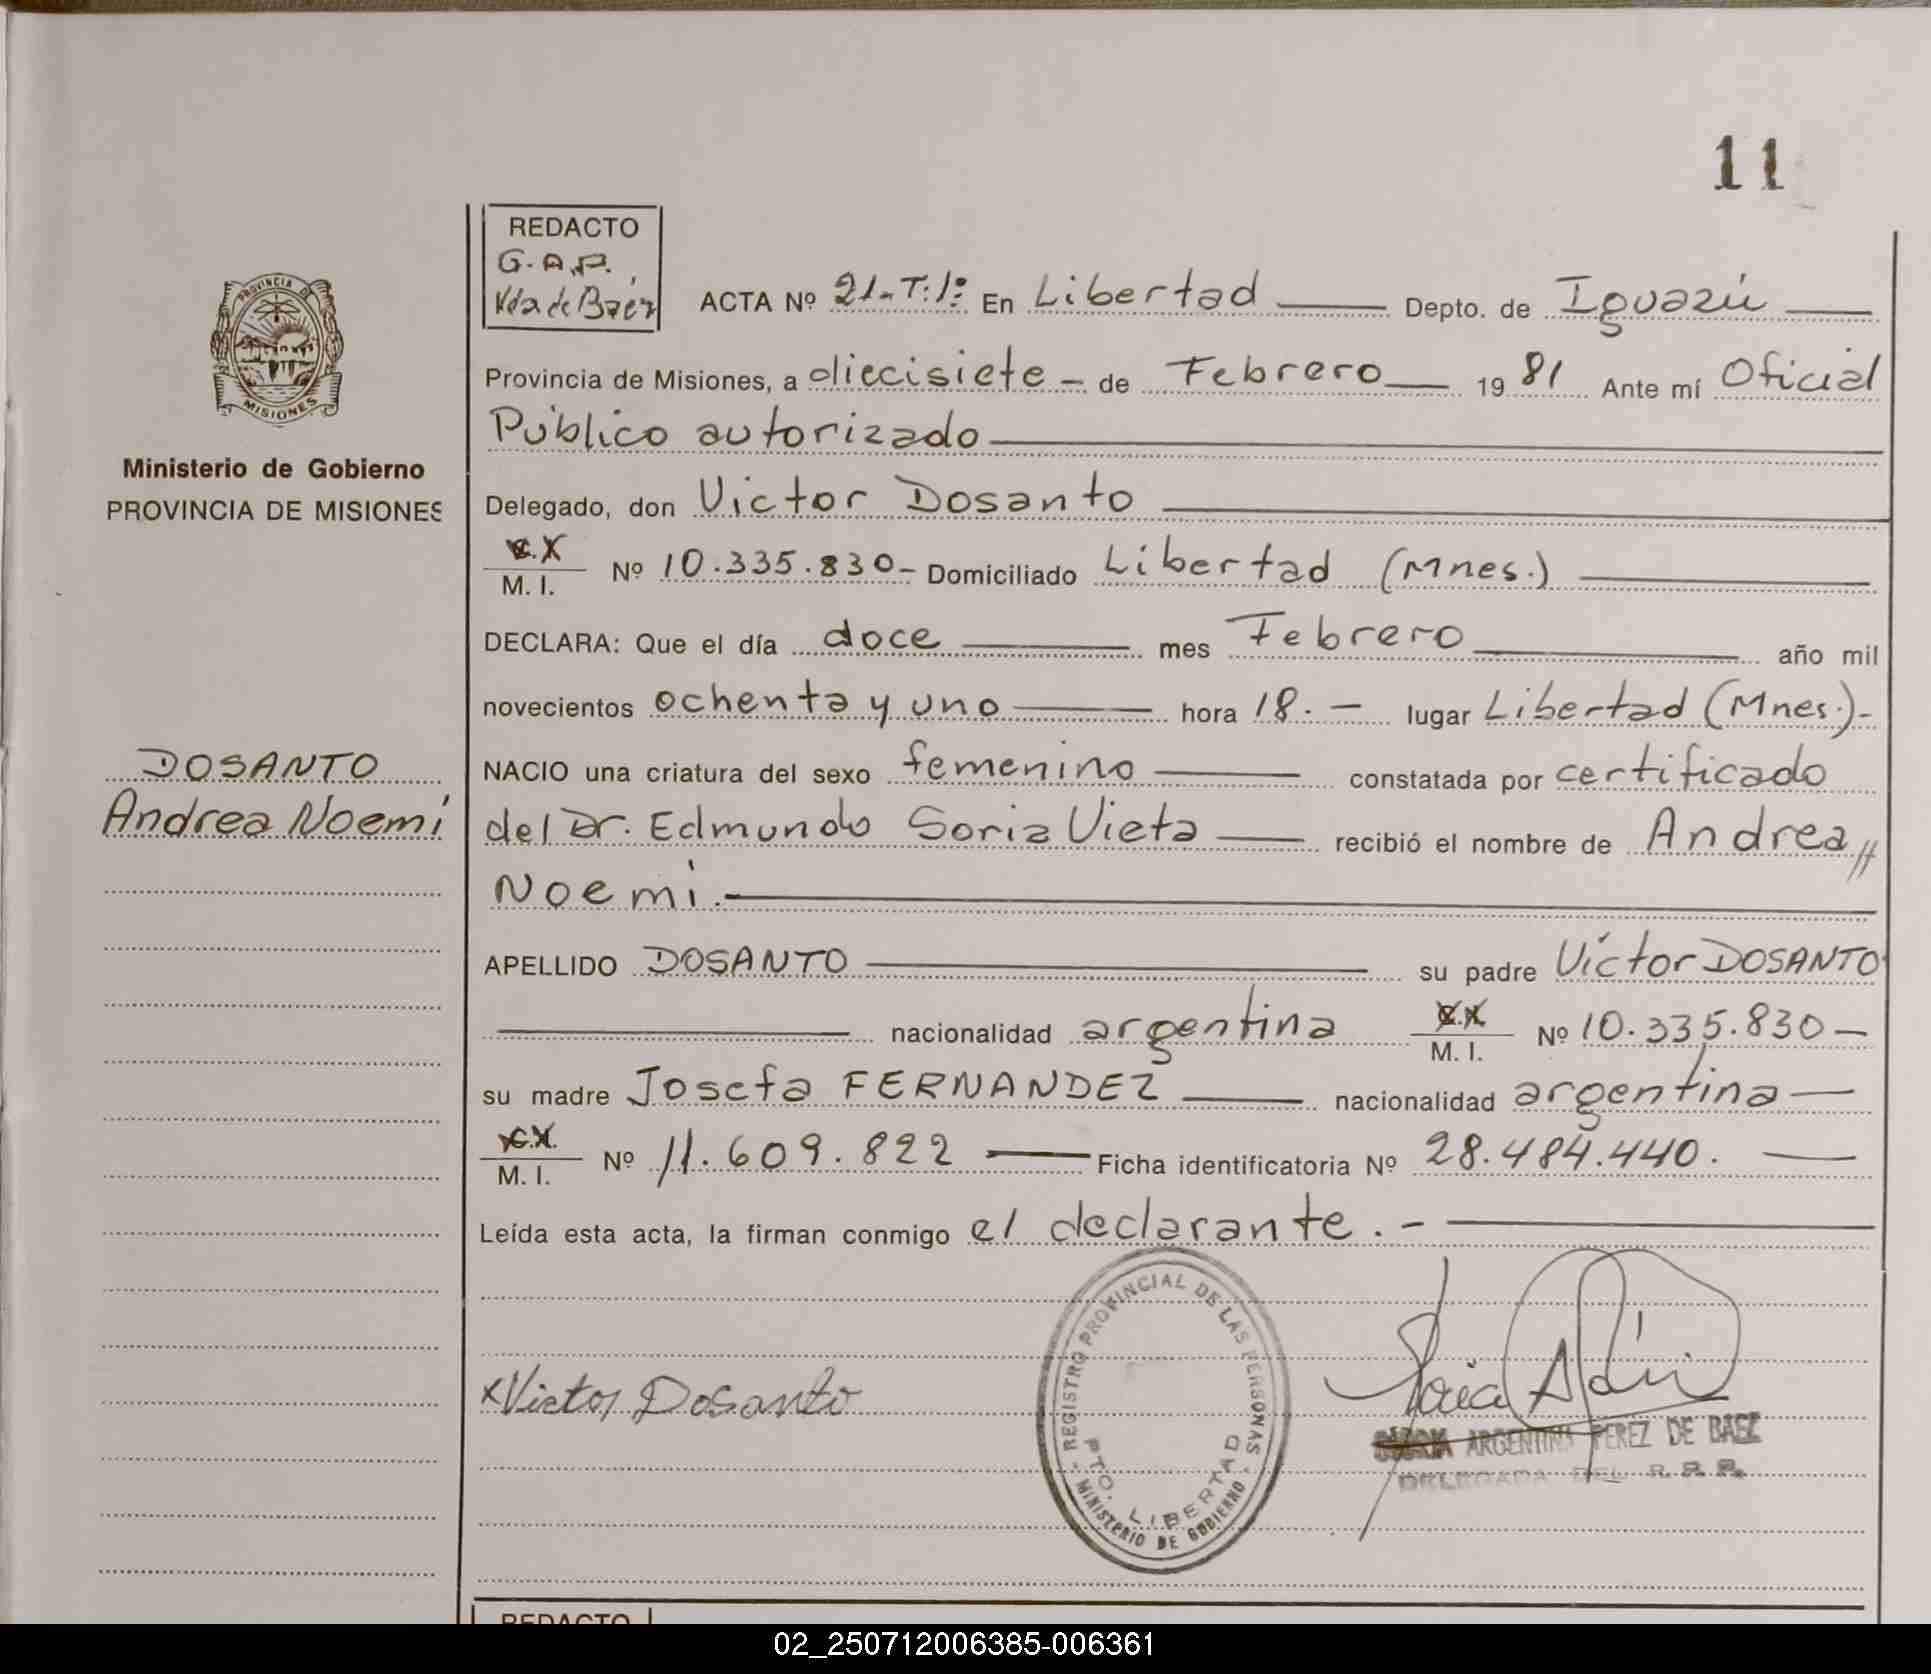 11
REDACTO
G.A.P.
Vda de Báez
PROVINCIA DE
MISIONES
Ministerio de Gobierno
PROVINCIA DE MISIONES
ACTA Nº 21-T:1º En Libertad Depto. de Iguazú
Provincia de Misiones, a diecisiete - de Febrero 19 81 Ante mí Oficial
Público autorizado
Delegado, don Victor Dosanto
M. I. Nº 10.335.830- Domiciliado Libertad (Mnes.)
DECLARA: Que el día doce mes Febrero año mil
novecientos ochenta y uno hora 18. - lugar Libertad (Mnes.)-
DOSANTO
Andrea Noemí
NACIO una criatura del sexo femenino constatada por certificado
del Dr. Edmundo Soria Vieta recibió el nombre de Andrea//
Noemí.-
APELLIDO DOSANTO su padre Víctor DOSANTO
nacionalidad argentina M. I. Nº 10.335.830-
su madre Josefa FERNANDEZ nacionalidad argentina-
M. I. Nº 11.609.822 Ficha identificatoria Nº 28.484.440. -
Leída esta acta, la firman conmigo el declarante.-
xVictor Dosanto
REGISTRO PROVINCIAL DE LAS PERSONAS
PTO. LIBERTAD
- MINISTERIO DE GOBIERNO -
ARGENTINA PEREZ DE BAEZ
DELEGADA DEL R. P. P.
REDACTO
02_250712006385-006361